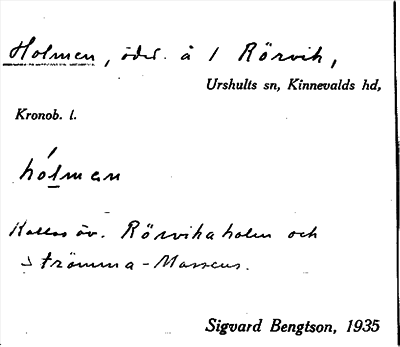 Holmen, öde. å 1 Rörvik,
Urshults sn, Kinnevalds hd,
Kronob. l.
hólman
Kallas äv. Rörvikaholm och
Strömma-
Sigvard Bengtson, 1935